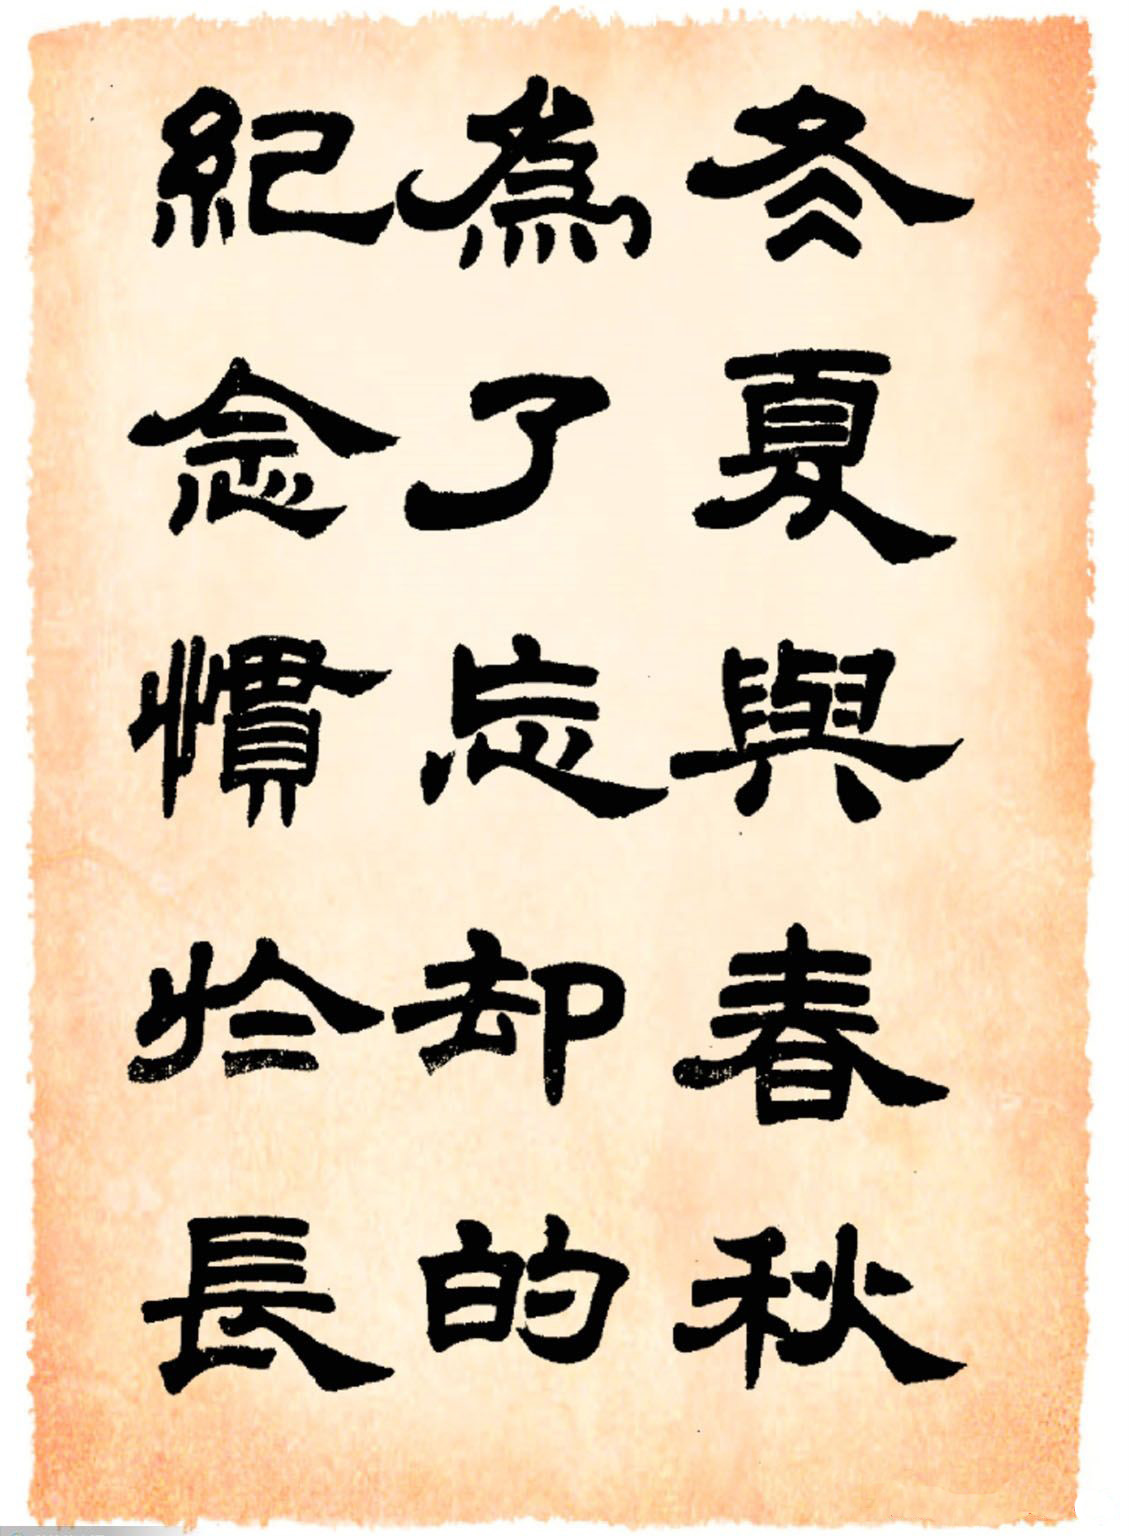 冬夏與春秋
為了忘却的
紀念慣於長